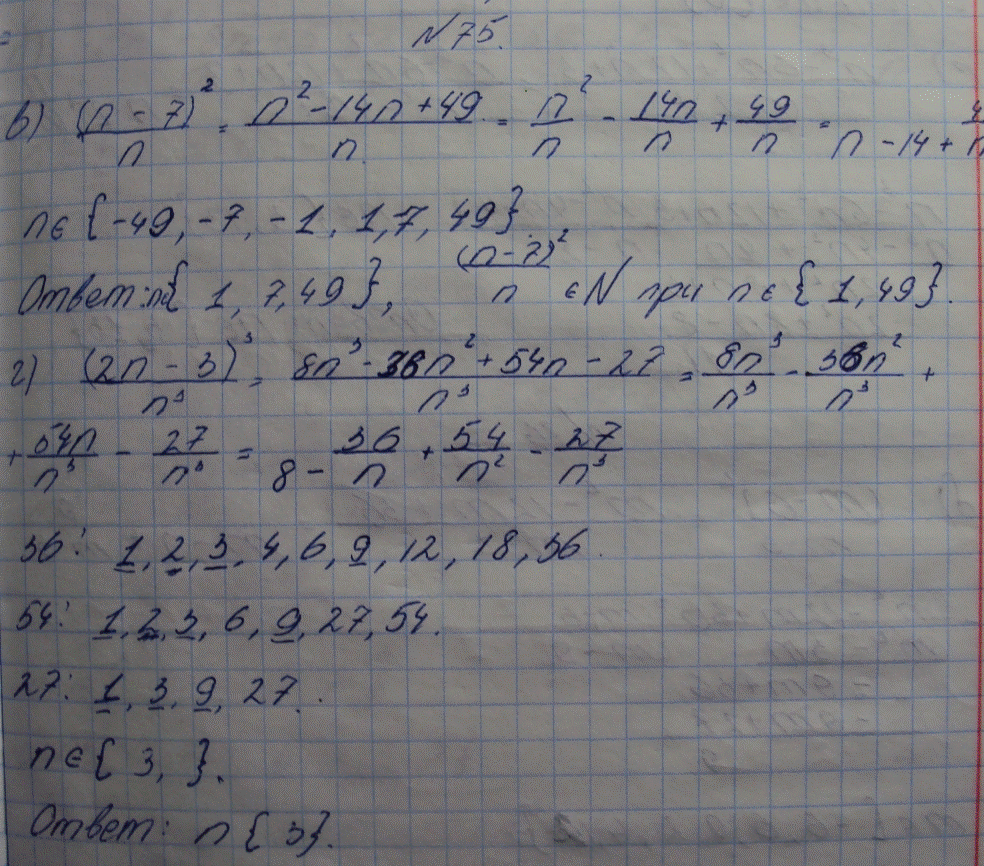 N 75.
в) (n - 7)²/n = n² - 14n + 49/n = n²/n - 14n/n + 49/n = n - 14 + 4/n
n ∈ {-49, -7, -1, 1, 7, 49}.
Ответ: n∈{ 1, 7, 49}, (n-7)²/n ∈ N при n ∈ { 1, 49}.
г) (2n - 3)³/n³ = 8n³ - 36n² + 54n - 27/n³ = 8n³/n³ - 36n²/n³ +
+ 54n/n³ - 27/n³ = 8 - 36/n + 54/n² - 27/n³
36: 1, 2, 3, 4, 6, 9, 12, 18, 36.
54: 1, 2, 3, 6, 9, 27, 54.
27: 1, 3, 9, 27.
n ∈ { 3, }.
Ответ: n { 3}.